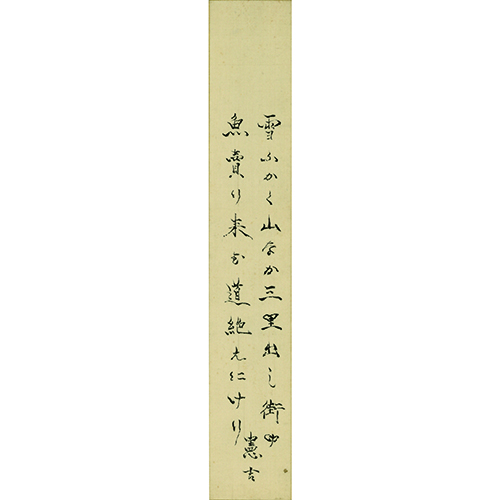 雪ふかく山なか三里し街ゆ
魚賣り来道絶えにけり
憲吉